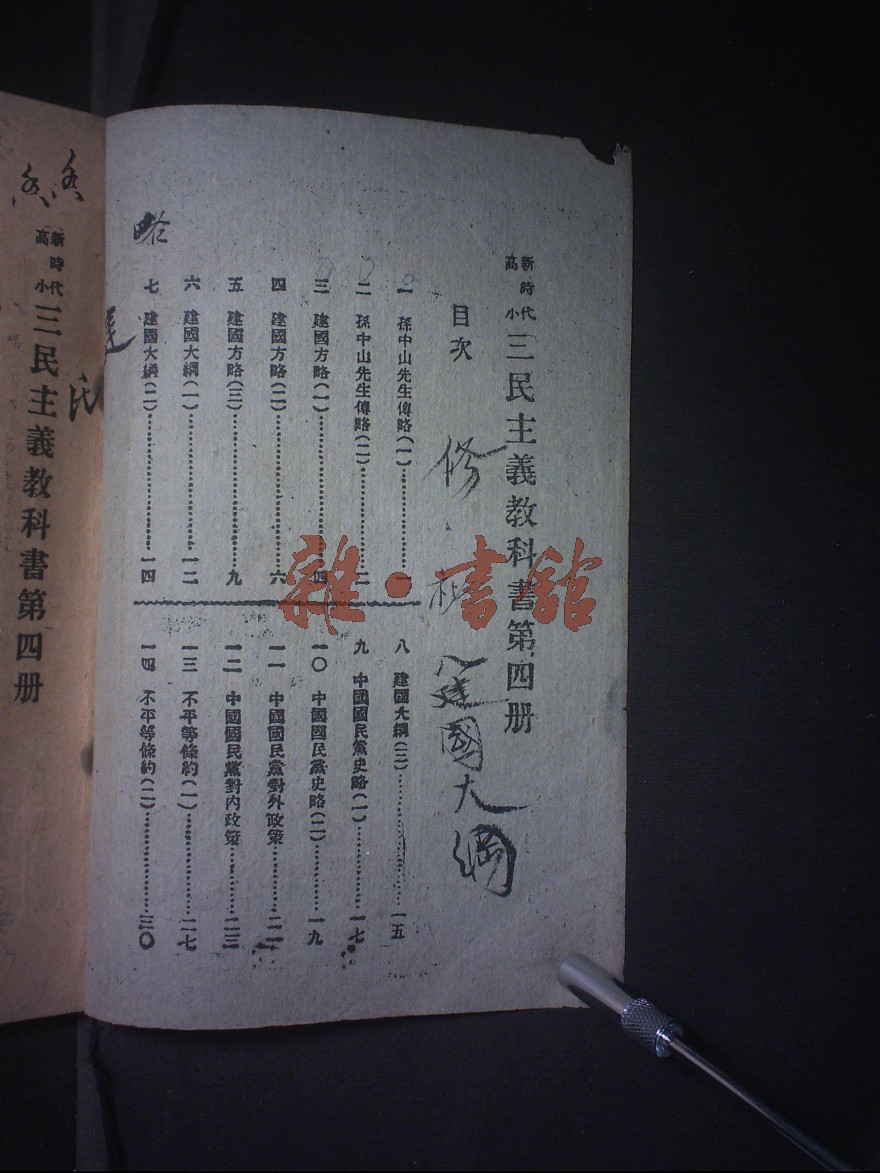 新時代高小 三民主義教科書第四册
目次
一 孫中山先生傳略(一)………一
二 孫中山先生傳略(二)………二
三 建國方略(一)………四
四 建國方略(二)………六
五 建國方略(三)………九
六 建國大綱(一)………一二
七 建國大綱(二)………一四
八 建國大綱(三)………一五
九 中國國民黨史略(一)………一七
一〇 中國國民黨史略(二)………一九
一一 中國國民黨對外政策………二一
一二 中國國民黨對內政策………二三
一三 不平等條約(一)………二七
一四 不平等條約(二)………三〇
修
建國大綱
雜·書館
新時代高小 三民主義教科書第四册
民